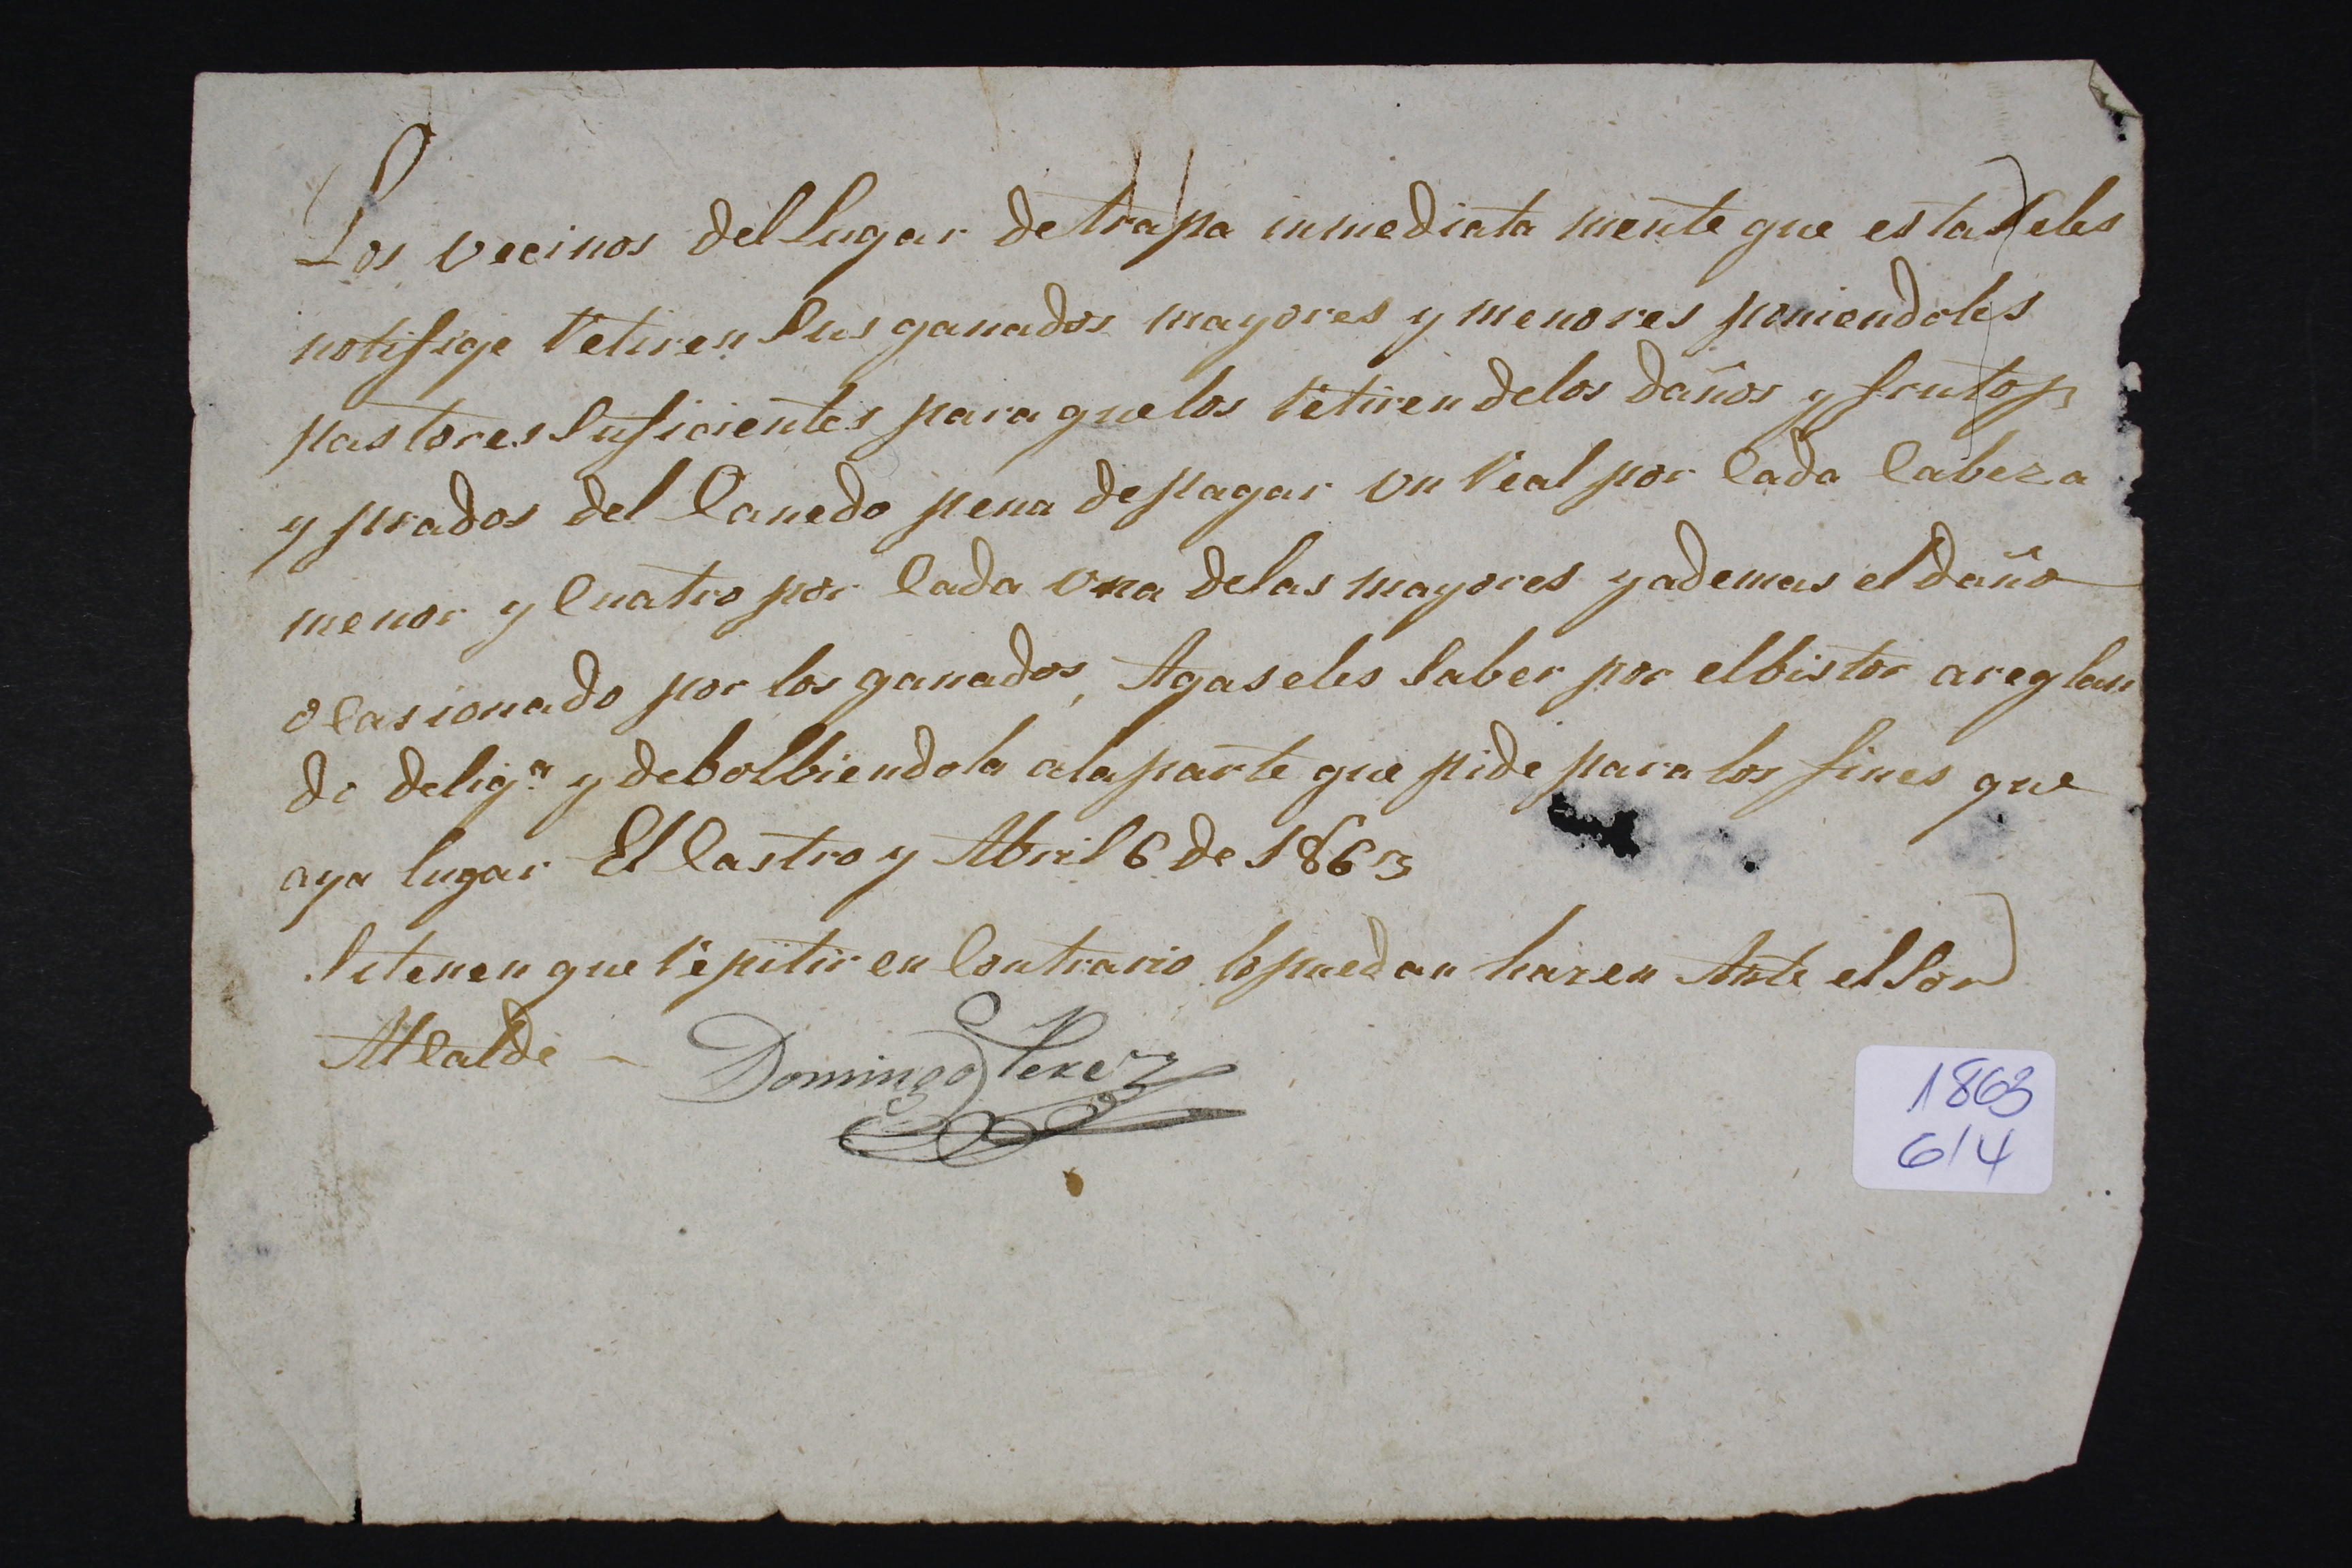 Los vecinos del lugar de trapa inmediata mente que esta seles
notifige retiren sus ganados mayores y menores poniendoles
pastores suficientes para que los retiren delos daños y frutos
y prados del Canedo pena de pagar un real por cada cabeza
menor y cuatro por cada una delas mayores y ademas el daño
ocasionado por los ganados, Agaseles saber por elbistor areglan
do delig.ª y debolbiendola ala parte que pide para los fines que
aya lugar El Castro y Abril 6 de 1863
Sitenen que repitir en contrario lo puedan hazen Ante el Sor
Alcalde – Domingo Perez
1863
6/4